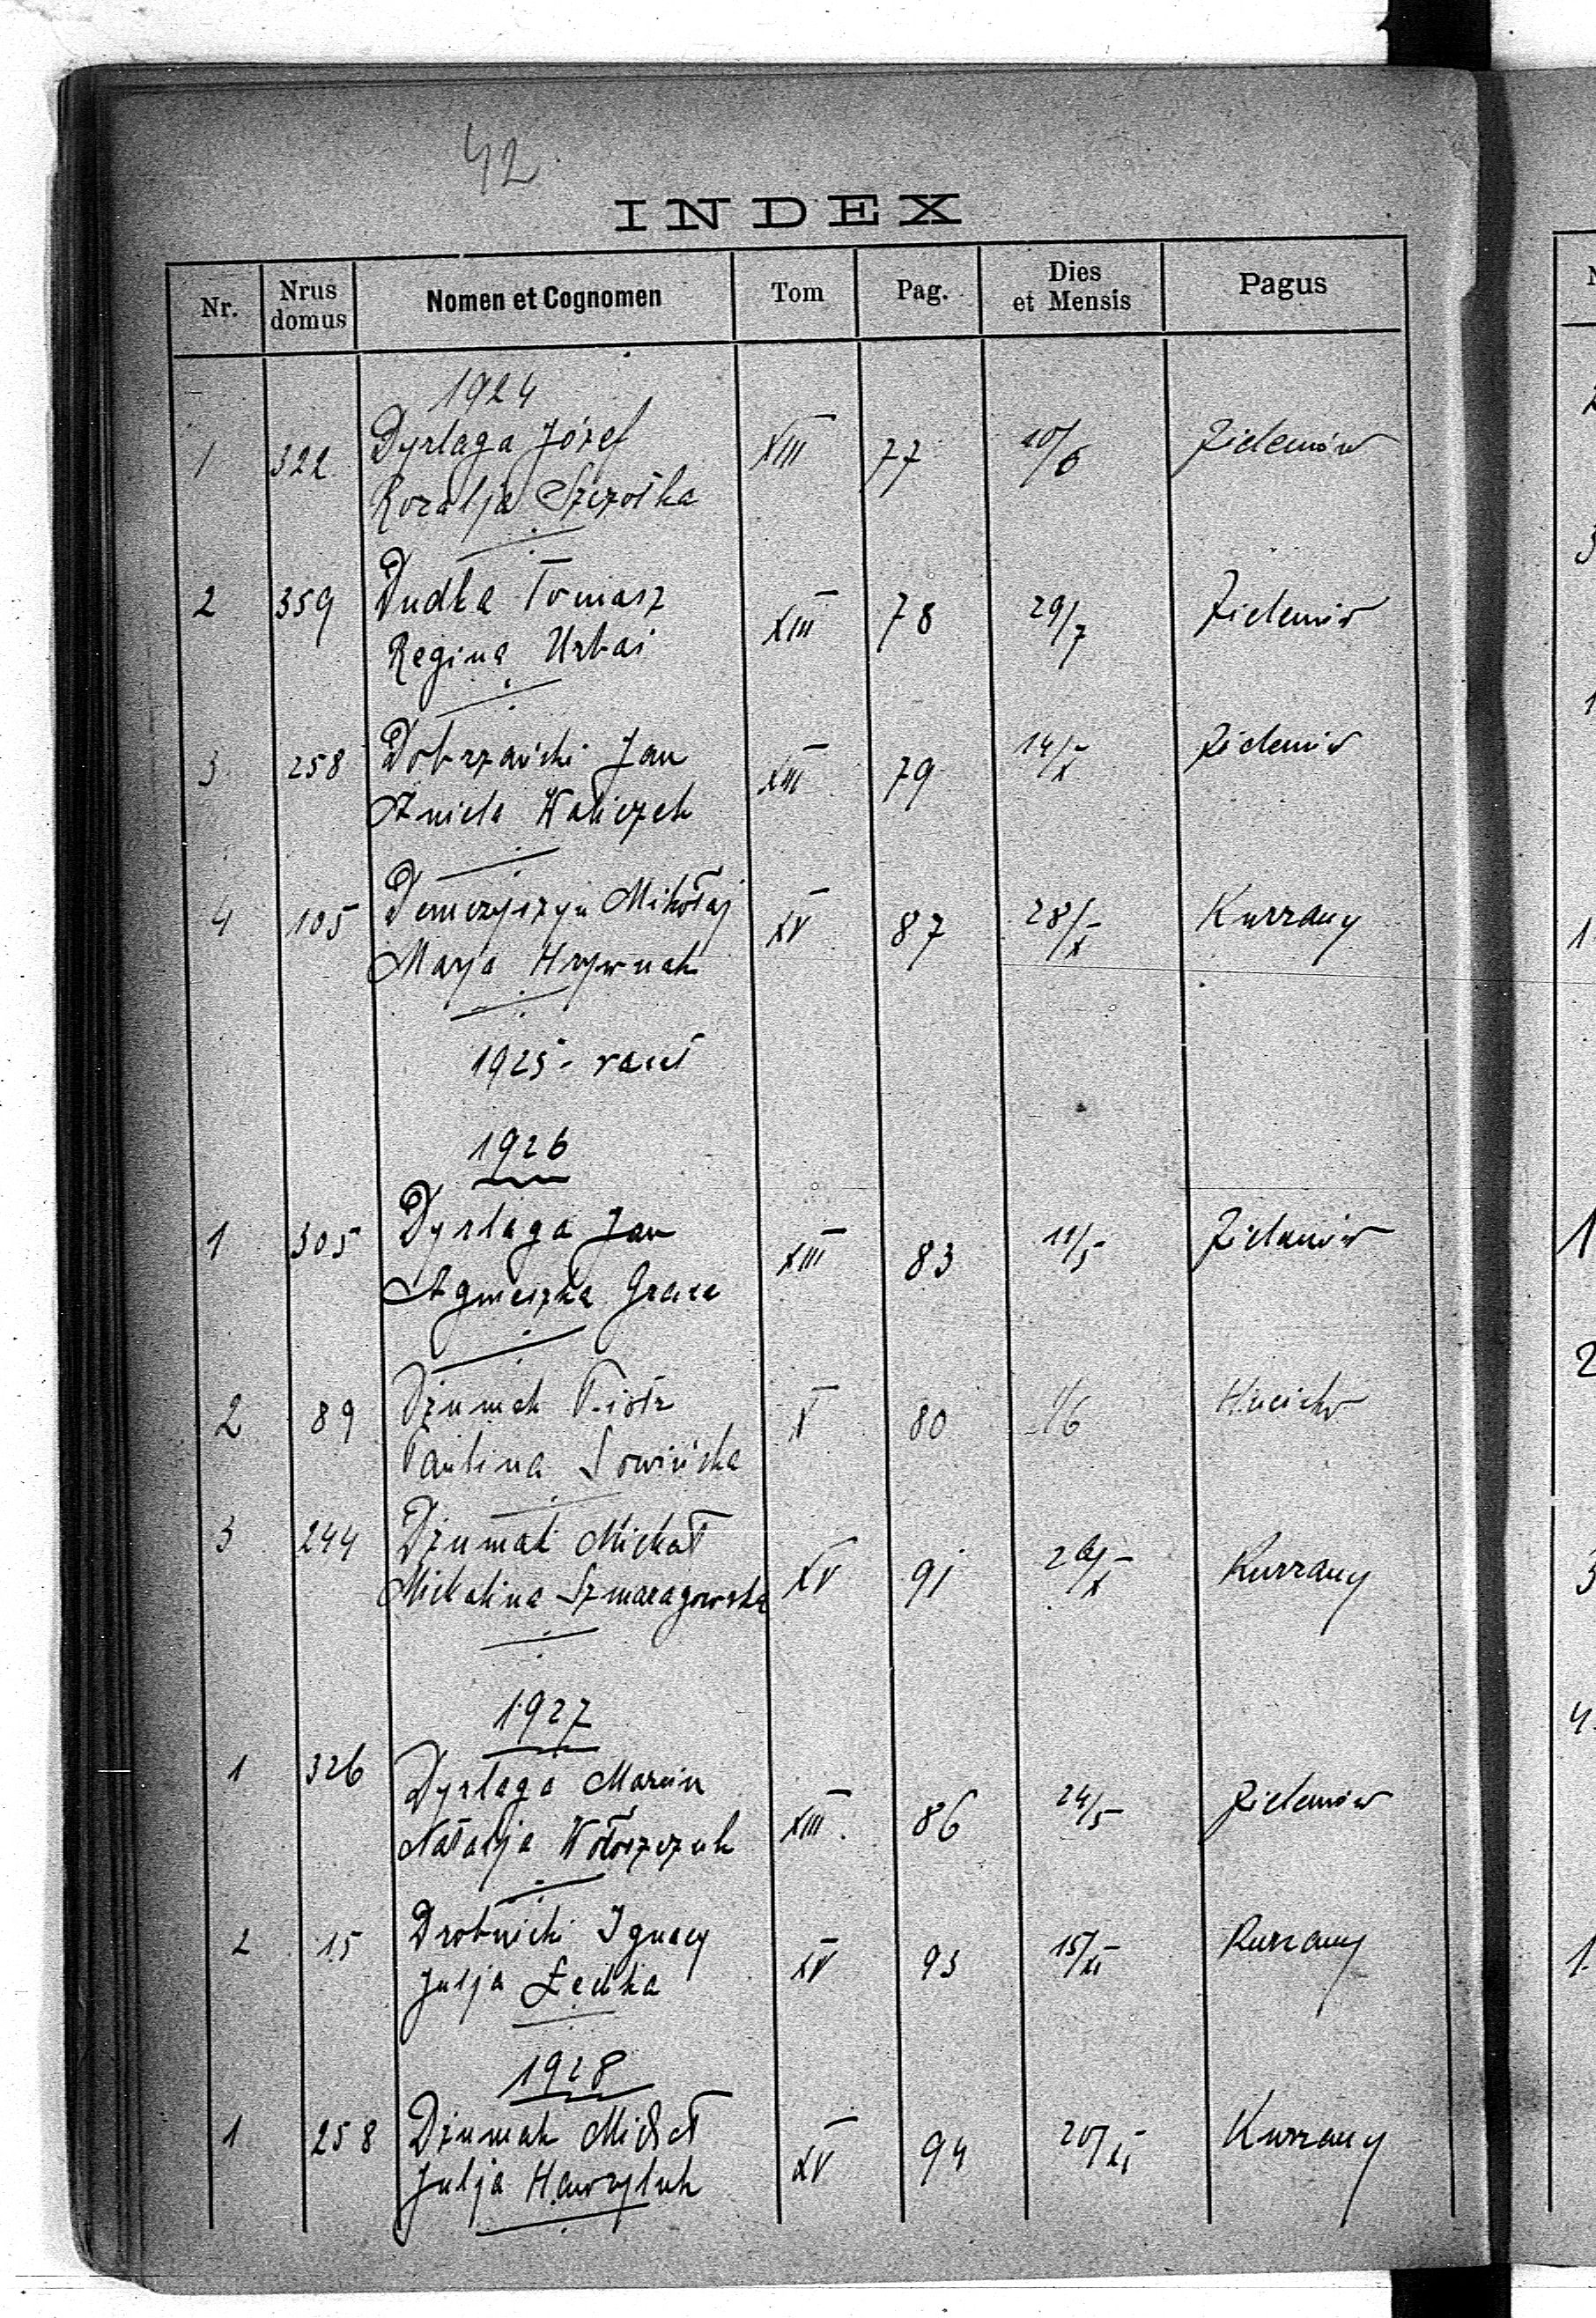 42
INDEX
Nr. Nrus domus Nomen et Cognomen Tom Pag. Dies et Mensis Pagus
1924
1 322 Dyrlaga Józef XIII 77 10/6 Zielemów
Rozalja Szczośka
2 359 Dudka Tomasz XIII 78 29/7 Zielemów
Regina Urbaś
3 258 Dobrzański Jan XIII 79 14/X Zielemów
Aniela Waliczek
4 105 Demczyszyn Mikołaj XV 87 28/X Kurzany
Marja Hrywnak
1925 - vacat
1926
1 305 Dyrlaga Jan XIII 83 11/5 Zielemów
Agnieszka
2 89 Dżumak Piotr V 80 1/6
Paulina Sowińska
3 244 Dżumak Michał XV 91 26/X Kurzany
Michalina Szmaragowska
1927
1 326 Dyrlaga Marcin XIII 86 24/5 Zielemów
Natalja Wołoszczuk
2 15 Drobnicki Ignacy XV 93 15/XI Kurzany
Julja Łecka
1928
1 258 Dżumak Michał XV 94 20/XI Kurzany
Julja Hawryluk